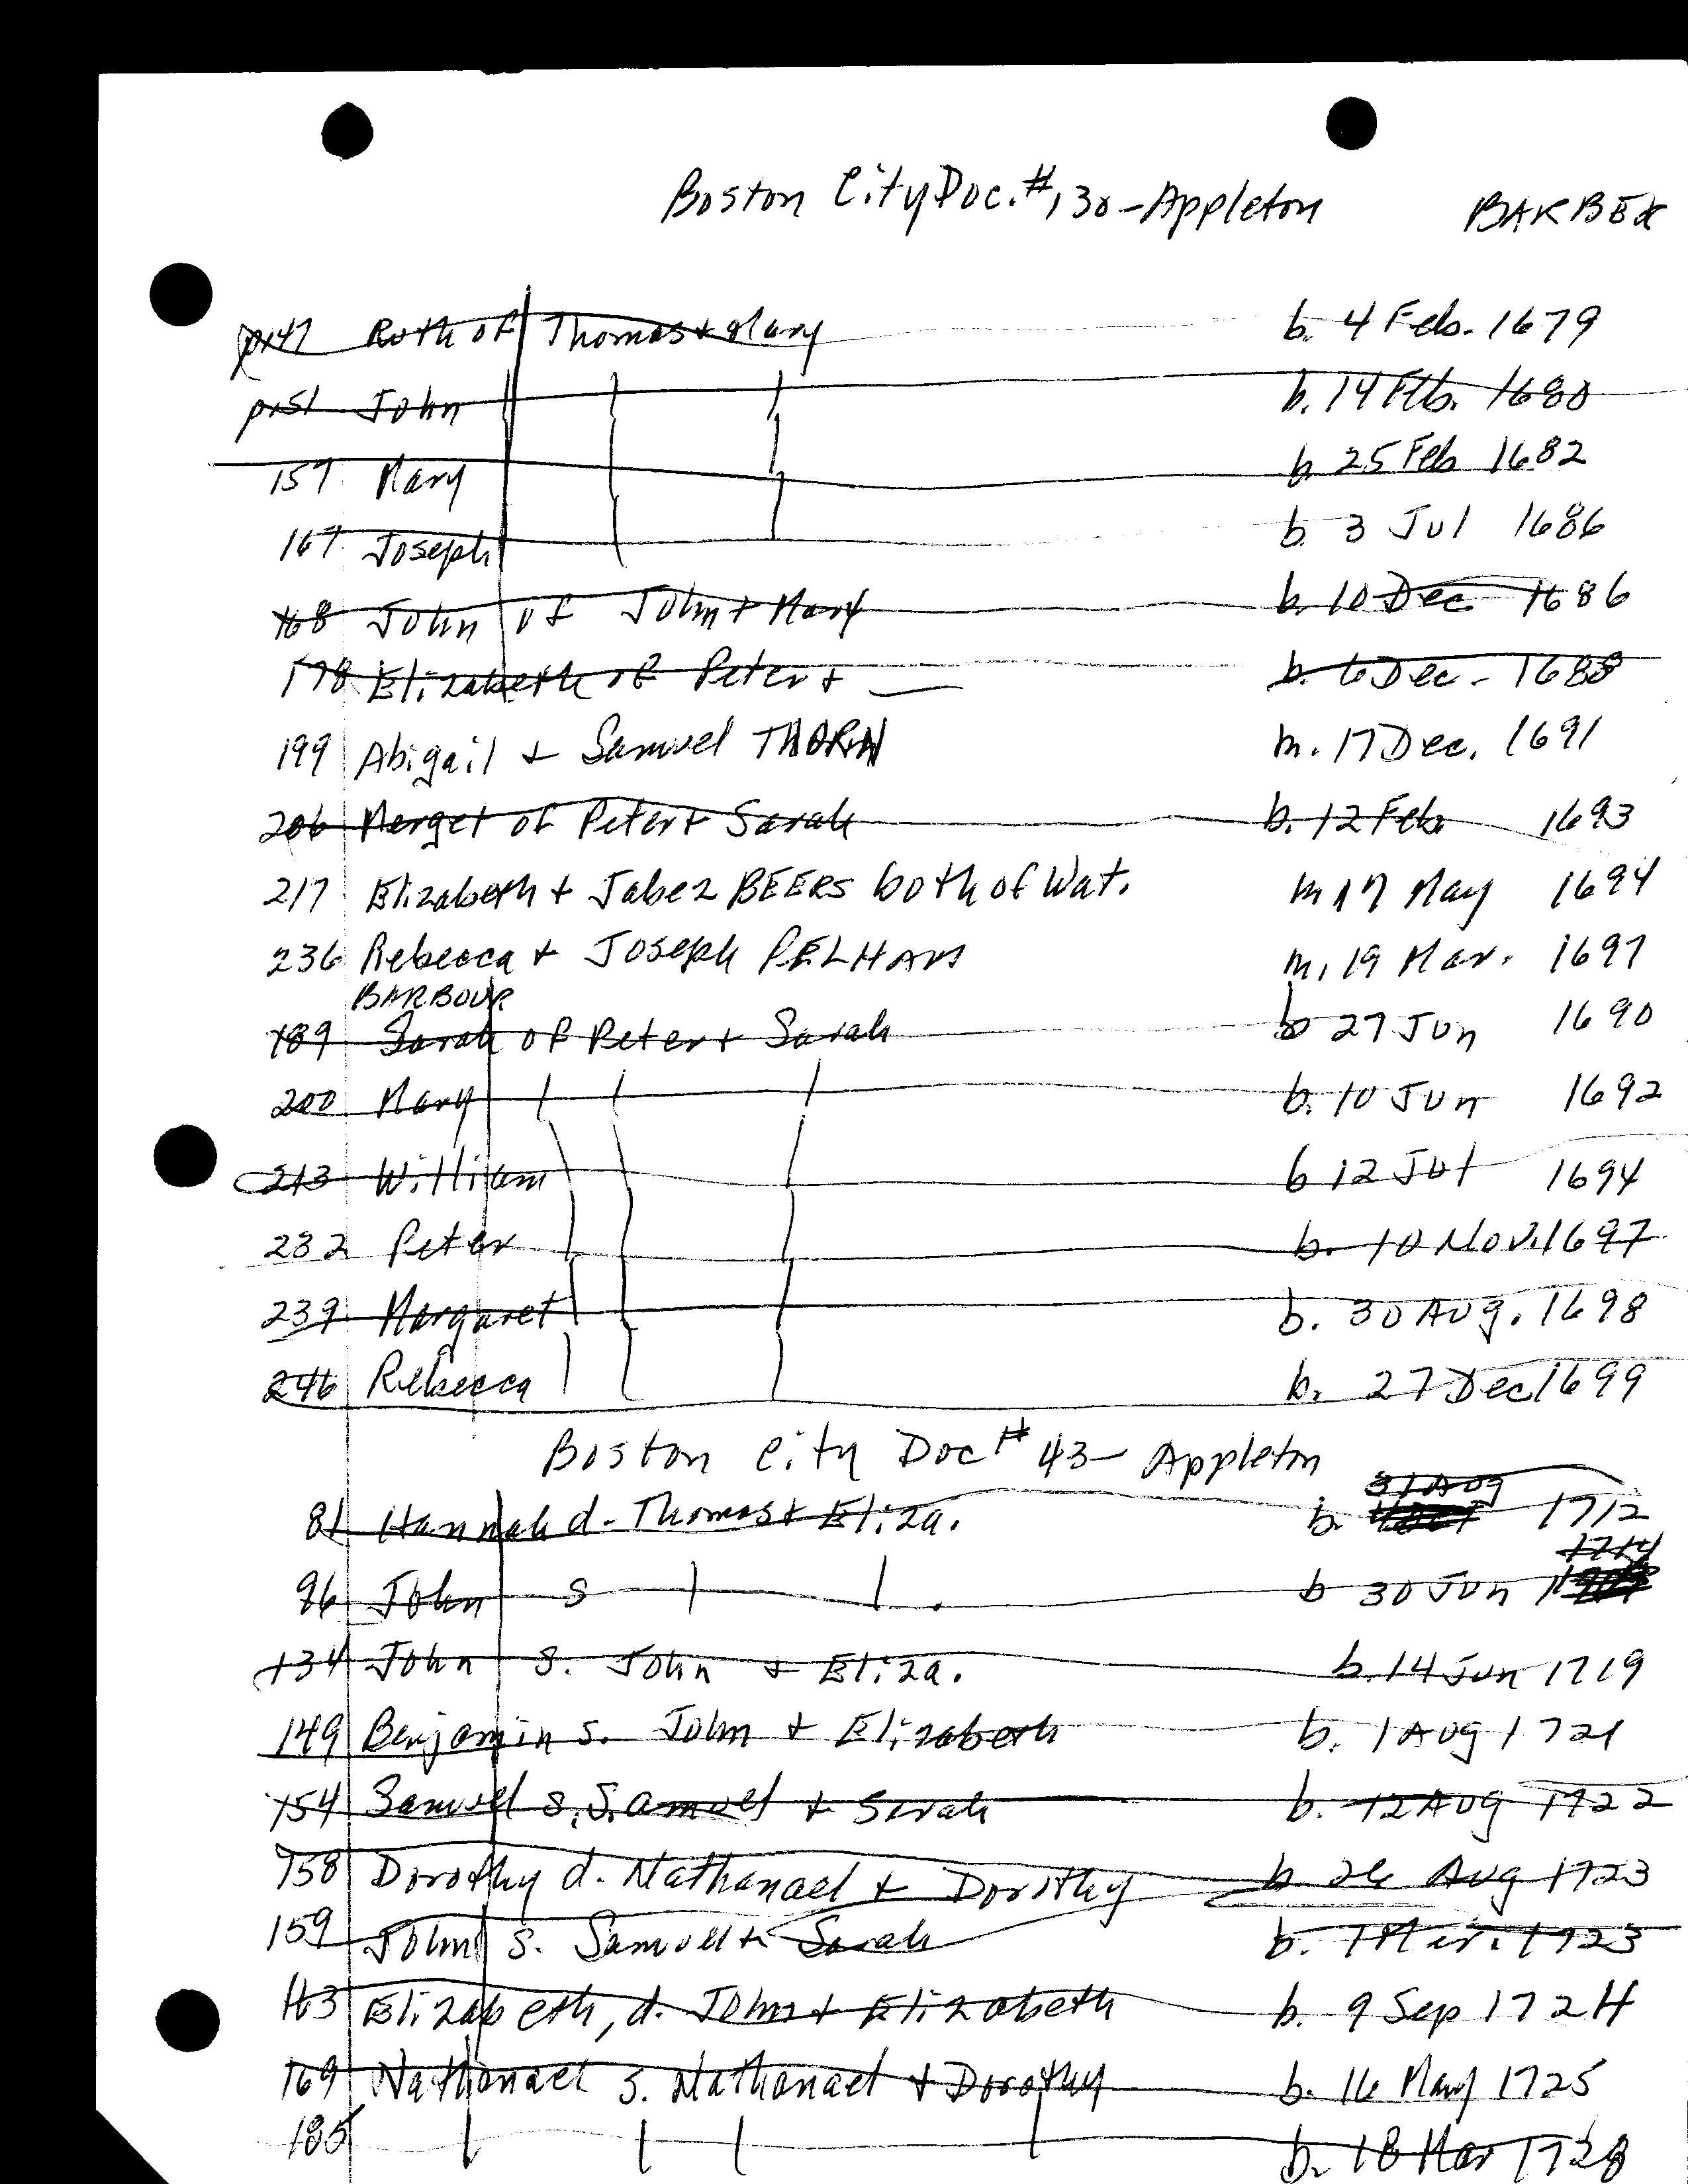 Boston City Doc. #130 - Appleton BARBER
p147 Ruth of Thomas + Mary b. 4 Feb. 1679
p151 John b. 14 Feb. 1680
157 Mary b. 25 Feb 1682
167 Joseph b. 3 Jul 1686
168 John of John + Mary b. 10 Dec 1686
178 Elizabeth of Peter + — b. 6 Dec. 1688
199 Abigail + Samuel THORN m. 17 Dec. 1691
206 Merget of Peter + Sarah b. 12 Feb. 1693
217 Elizabeth + Jabez BEERS both of Wat. m 17 May 1694
236 Rebecca + Joseph PELHAM m. 19 Mar. 1697
BARBOUR
189 Sarah of Peter + Sarah b 27 Jun 1690
200 Mary b. 10 Jun 1692
213 William b 12 Jul 1694
232 Peter b. 10 Nov. 1697
239 Margaret b. 30 Aug. 1698
246 Rebecca b. 27 Dec 1699
Boston City Doc # 43 - Appleton
81 Hannah d. Thomas + Eliza. b. 31 Aug 1712
96 John s b 30 Jun 1714
134 John s. John + Eliza. b. 14 Jun 1719
149 Benjamin s. John + Elizabeth b. 1 Aug 1721
154 Samuel s. Samuel + Sarah b. 12 Aug 1722
158 Dorothy d. Nathanael + Dorothy b 26 Aug 1723
159 John s. Samuel + Sarah b. 1 Mar. 1723
163 Elizabeth, d. John + Elizabeth b. 9 Sep 1724
169 Nathanael s. Nathanael + Dorothy b. 16 May 1725
185 b. 18 Mar 1728